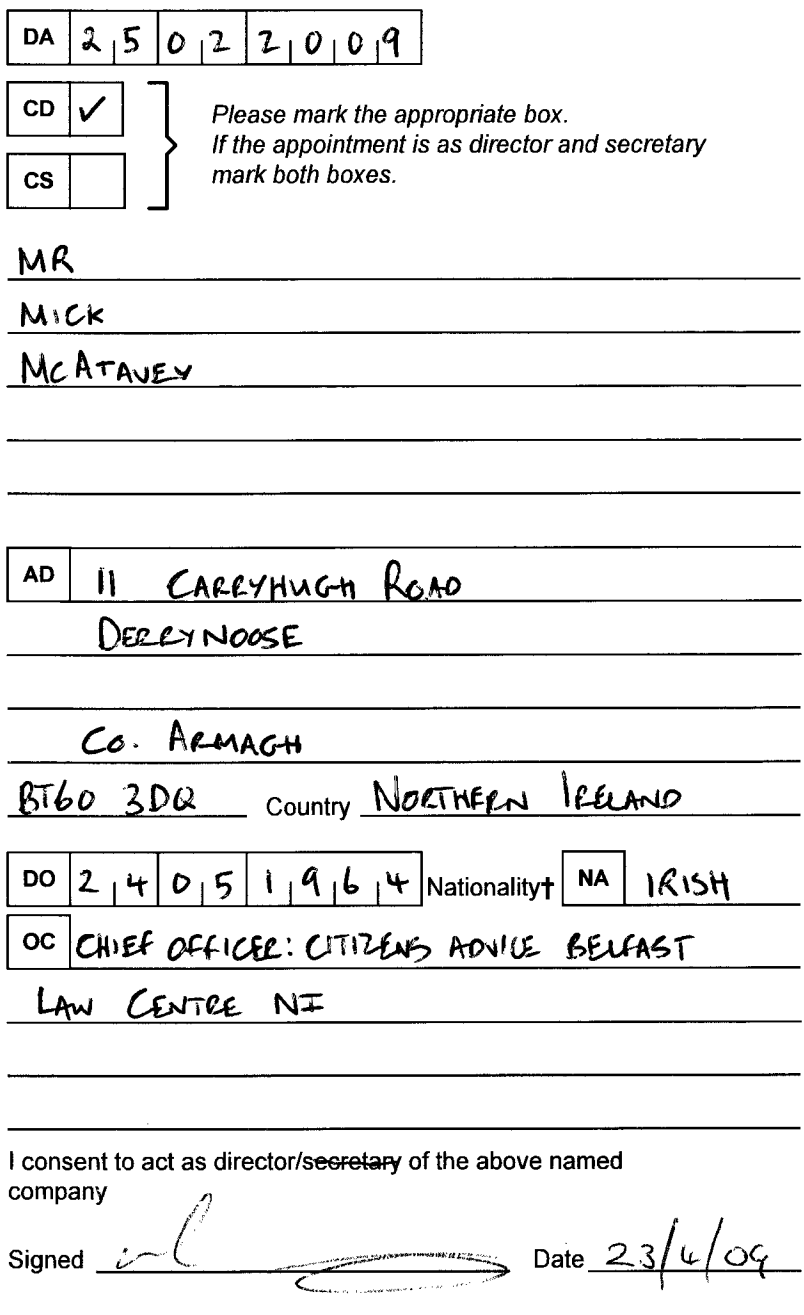 DA 25022009
CD ✓
Please mark the appropriate box.
If the appointment is as director and secretary
mark both boxes.
CS
MR
MICK
MCATAVEY
AD 11 CARRYHUGH ROAD
DERRYNOOSE
CO. ARMAGH
BT60 3DQ Country NORTHERN IRELAND
DO 24051964 Nationality† NA IRISH
OC CHIEF OFFICER: CITIZENS ADVICE BELFAST
LAW CENTRE NI
I consent to act as director/secretary of the above named
company
Signed Date 23/4/09